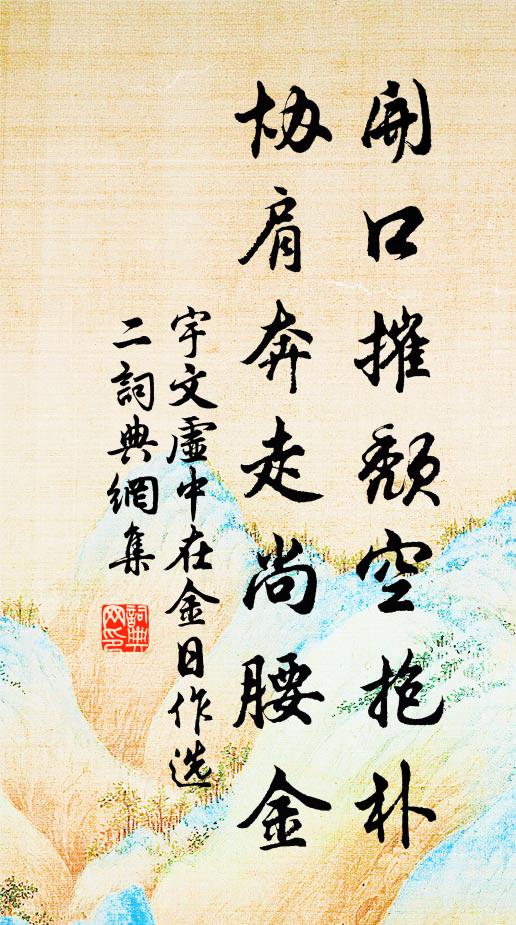 開口摧頹空抱朴
协肩奔走尚腰金
宇文虛中在金日作选
二詞典網集
詞典
网印